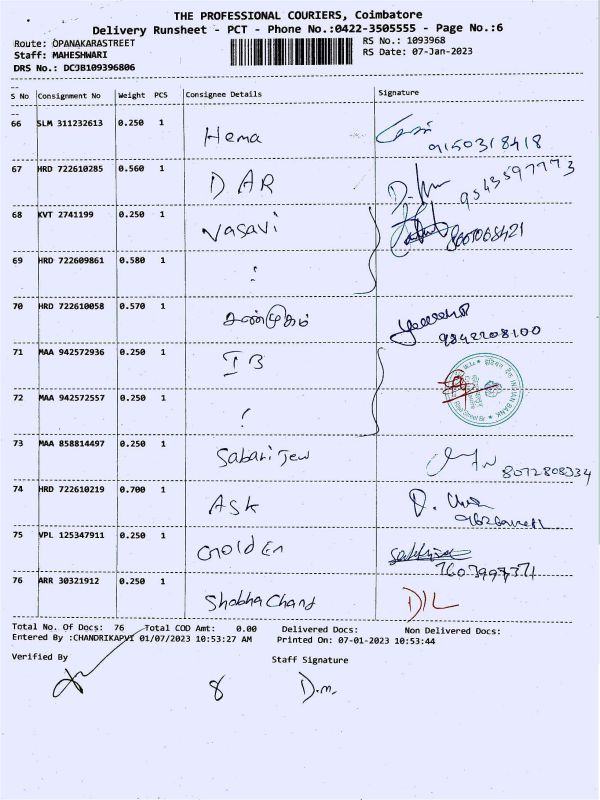 THE PROFESSIONAL COURIERS, Coimbatore
Delivery Runsheet - PCT - Phone No.:0422-3505555 - Page No.:6
Route: OPANAKARASTREET
RS No.: 1093968
Staff: MAHESHWARI
RS Date: 07-Jan-2023
DRS No.: DCJB109396806
S No Consignment No Weight PCS Consignee Details Signature
66 SLM 311232613 0.250 1 Hema 9150318418
67 HRD 722610285 0.560 1 DAR 9543597773
68 KVT 2741199 0.250 1 Vasavi
69 HRD 722609861 0.580 1
70 HRD 722610058 0.570 1 சண்முகம் 9842208100
71 MAA 942572936 0.250 1 IB
72 MAA 942572557 0.250 1
INDIAN BANK
73 MAA 858814497 0.250 1 Sabari Jew 8072808334
74 HRD 722610219 0.700 1 ASK
75 VPL 125347911 0.250 1 Golden
76 ARR 30321912 0.250 1 Shobha Chand D/L
Total No. Of Docs: 76 Total COD Amt: 0.00 Delivered Docs: Non Delivered Docs:
Entered By :CHANDRIKAPVI 01/07/2023 10:53:27 AM Printed On: 07-01-2023 10:53:44
Verified By Staff Signature
8 D.m.